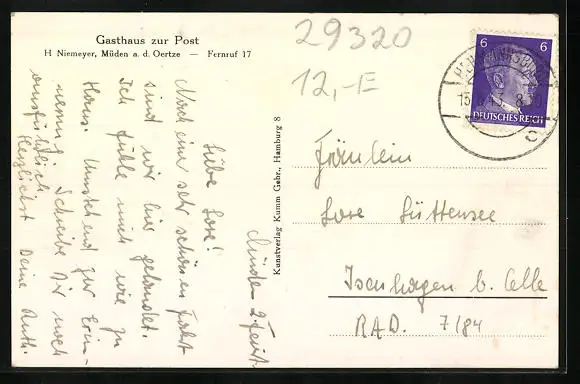 Gasthaus zur Post
H Niemeyer, Müden a. d. Oertze — Fernruf 17
29320
12,-E
6 6
DEUTSCHES REICH
Müden
Liebe Lore!
Nach einer sehr schönen Fahrt
sind wir hier gelandet.
Ich fühle mich wie zu
Haus. Umstehend zur Erin-
nerung. Schreibe Dir noch
ausführlich
Herzlichst Deine Ruth.
Kunstverlag Kumm Gebr., Hamburg 8
Fräulein
Lore Lüttensee
Isenhagen b. Celle
RAD. 7/84